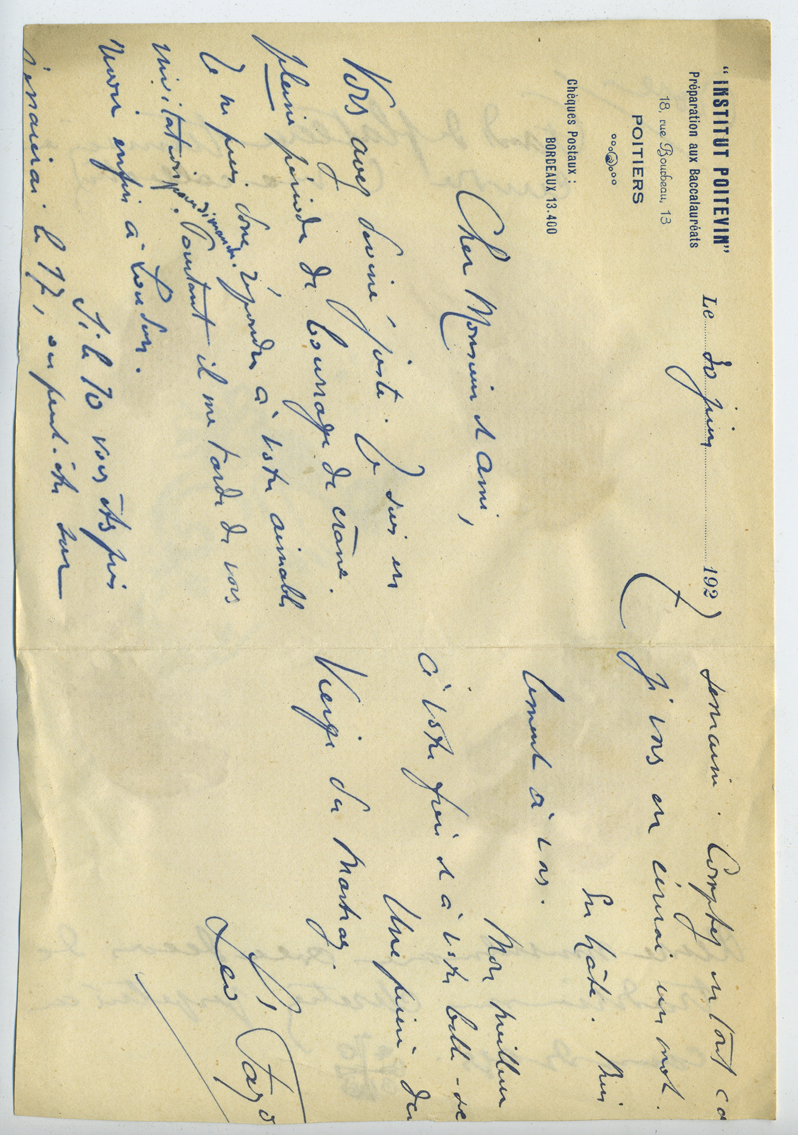 "INSTITUT POITEVIN"
Préparation aux Baccalauréats
18, rue Boudeau, 13
POITIERS
Chèques Postaux :
BORDEAUX 13.400
Le 30 juin 1927
Cher Monsieur et ami,
Vous avez deviné juste. Je suis en
pleine période de bourrage de crâne.
Je ne puis donc répondre à votre aimable
invitation pour dimanche. Pourtant il me tarde de vous
revoir enfin à Loudun.
Si le 10 vous êtes pris
j'essaierai le 17, ou peut-être sur
semaine. Comptez en tout ca
je vous en écrirai un mot.
En hâte. Bien
lement à vous.
Mon meilleur
à votre frère et à votre belle-sœ
Une prière de
Vierge du Martray